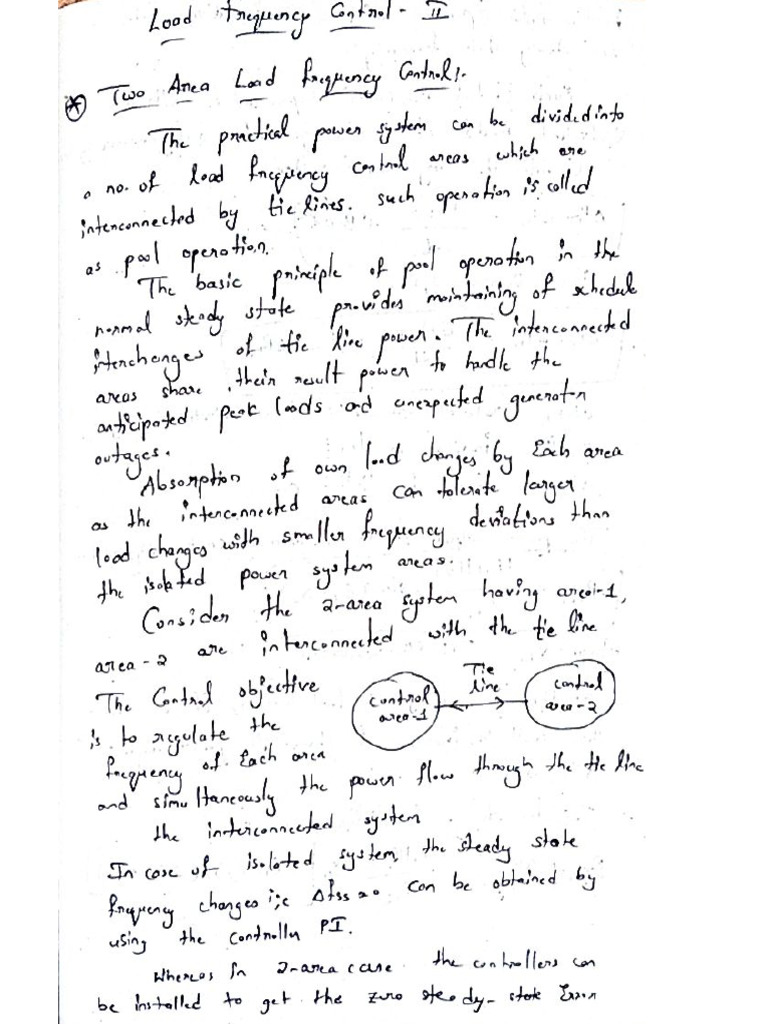 Load Frequency Control - II
* Two Area Load Frequency Control:.
The practical power system can be divided into
a no. of load frequency control areas which are
interconnected by tie lines. such operation is called
as pool operation.
The basic principle of pool operation in the
normal steady state provides maintaining of schedule
interchanges of tie line power. The interconnected
areas share their result power to handle the
anticipated peak loads and unexpected generator
outages.
Absorption of own load changes by Each area
as the interconnected areas can tolerate larger
load changes with smaller frequency deviations than
the isolated power system areas.
Consider the 2-area system having area-1,
area-2 are interconnected with the tie line
The Control objective
is to regulate the
frequency of Each area
control area-1
Tie line
control area-2
and simultaneously the power flow through the tie line
the interconnected system
In case of isolated system, the steady state
frequency changes i;e Δfss=0 can be obtained by
using the controller PI.
Whereas in 2-area case the controllers can
be installed to get the zero steady-state Error